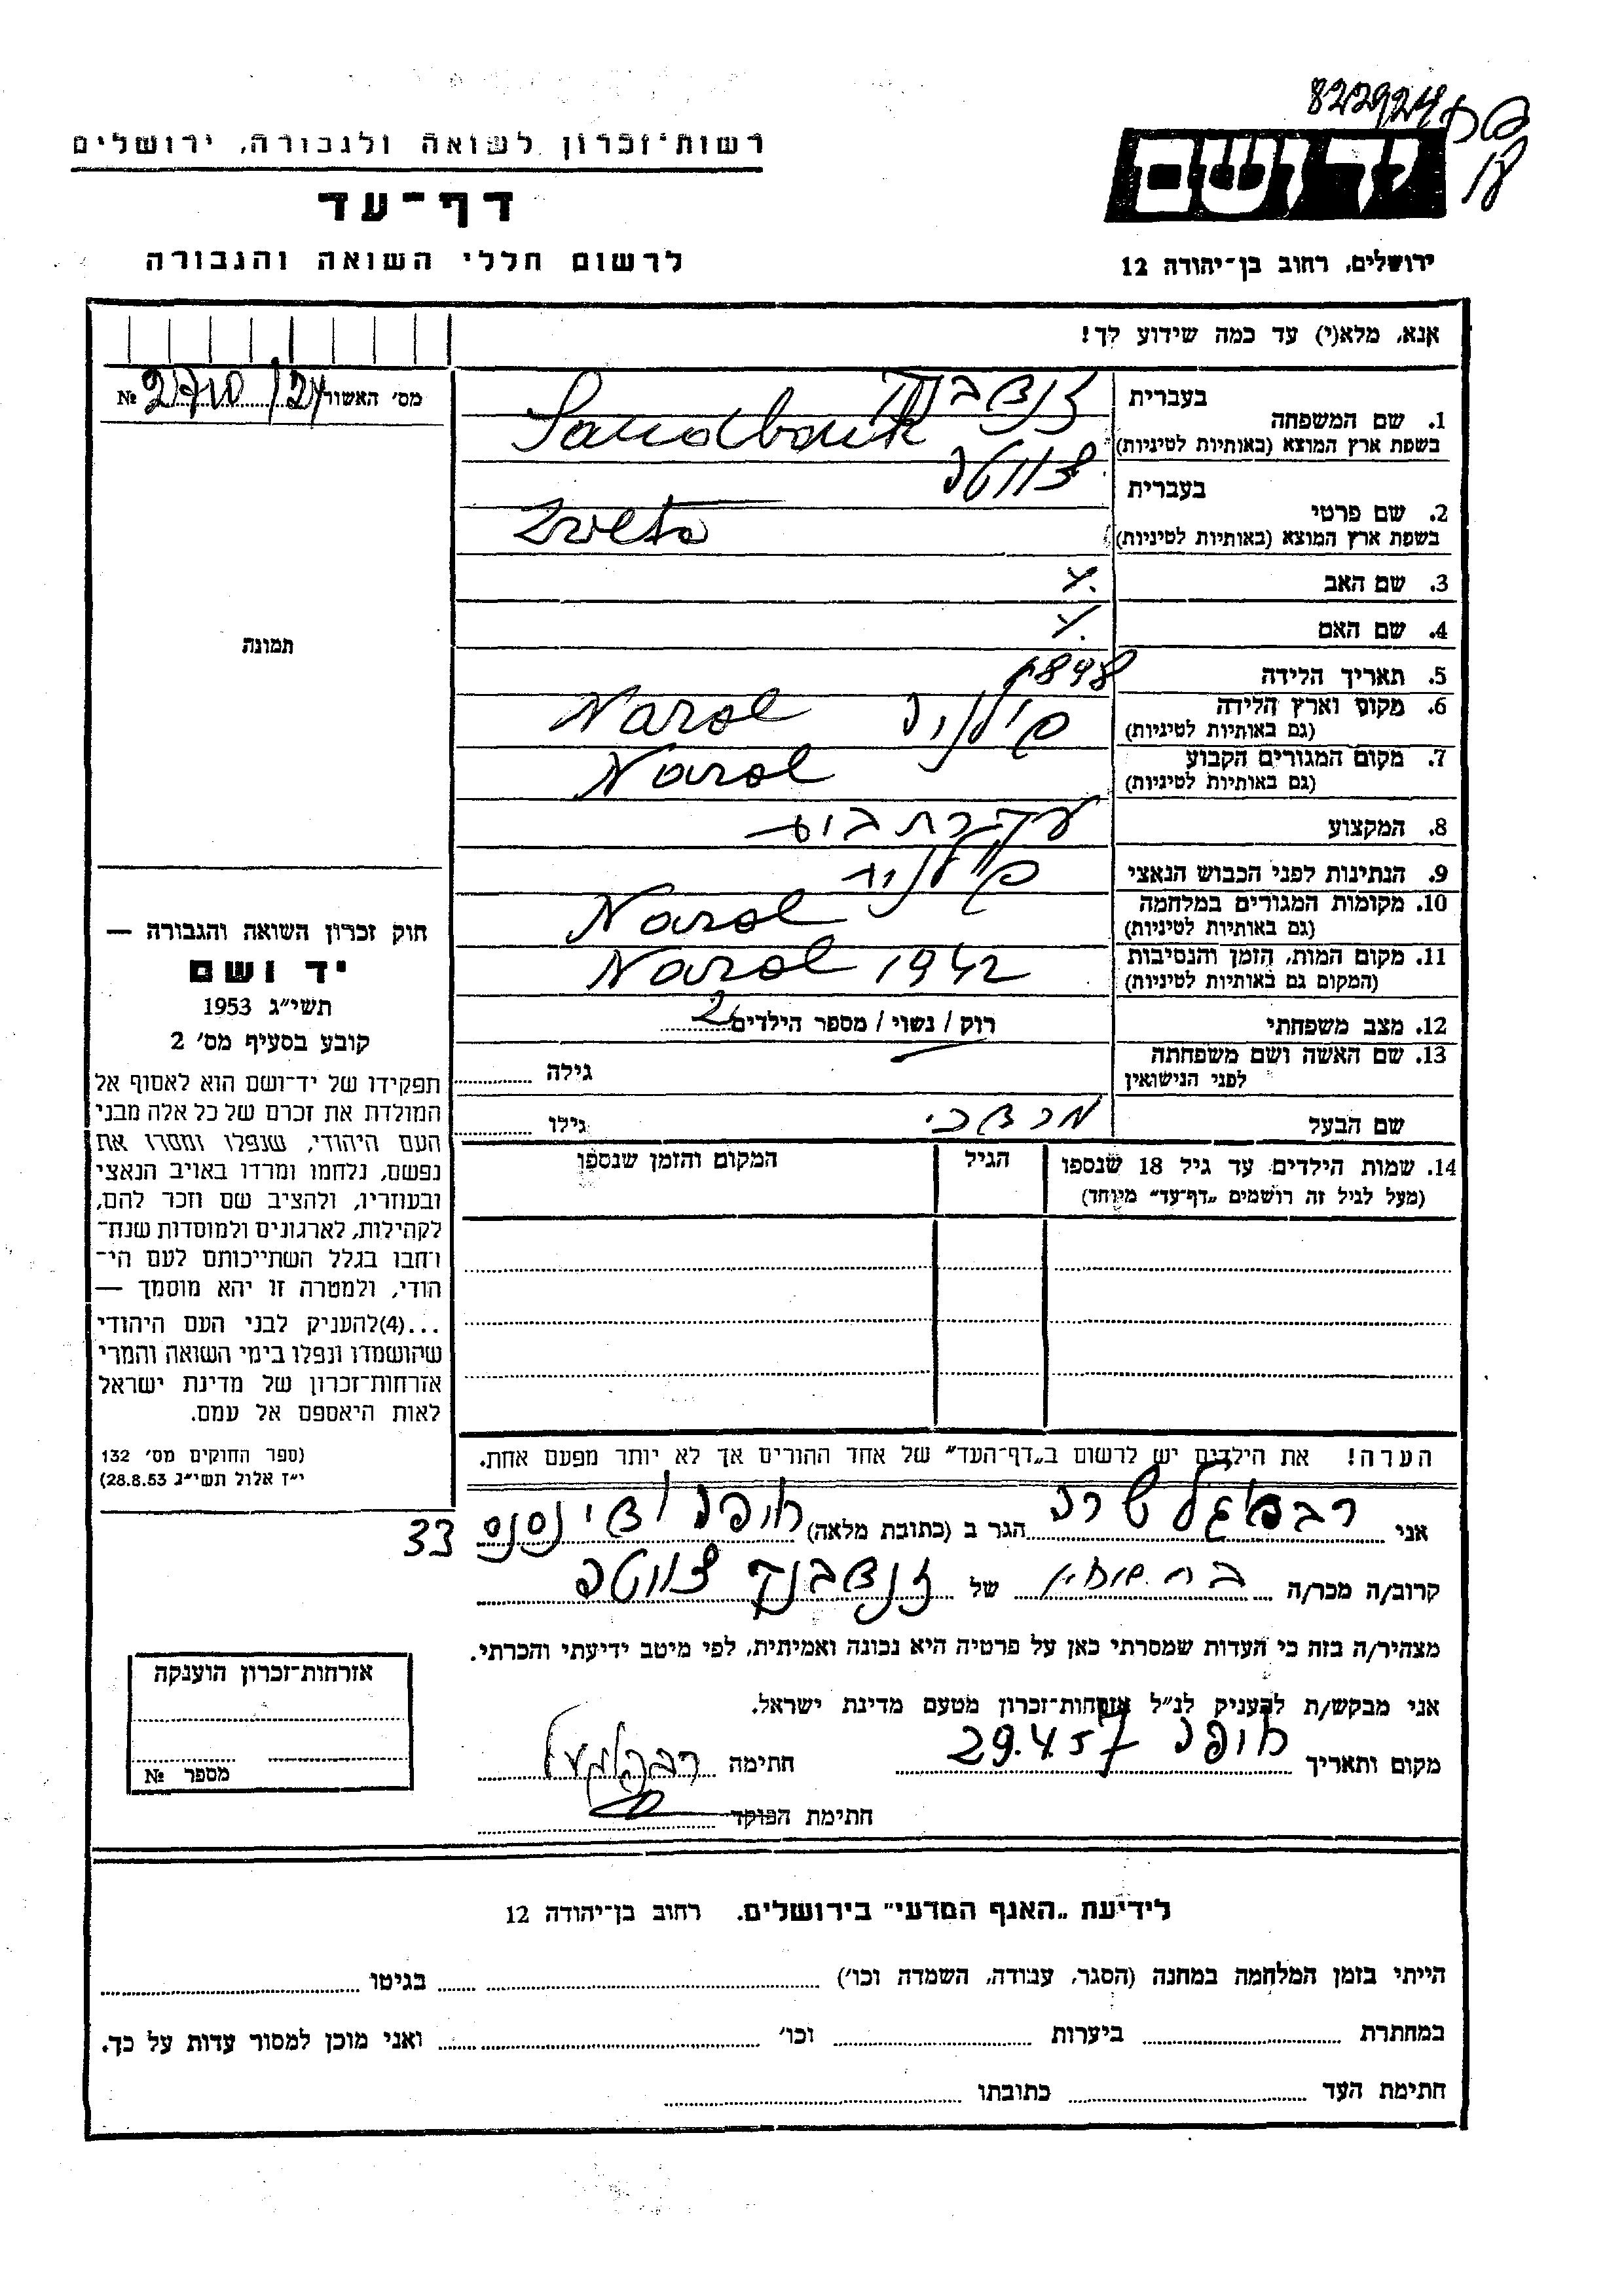 8229248
רשות־זכרון לשואה ולגבורה, ירושלים
יד ושם
דף־עד
לרשום חללי השואה והגבורה
ירושלים, רחוב בן־יהודה 12
אנא, מלא(י) עד כמה שידוע לך!
מס׳ האשור № 2710/24
1. שם המשפחה
בעברית זנדבנק
בשפת ארץ המוצא (באותיות לטיניות) Sandbank
2. שם פרטי
בעברית צווטה
בשפת ארץ המוצא (באותיות לטיניות) Zveta
3. שם האב
4. שם האם
תמונה
5. תאריך הלידה 1898
6. מקום וארץ הלידה פולניה Narol
(גם באותיות לטיניות)
7. מקום המגורים הקבוע Narol
(גם באותיות לטיניות)
8. המקצוע עקרת בית
9. הנתינות לפני הכבוש הנאצי פולנית
10. מקומות המגורים במלחמה Narol
(גם באותיות לטיניות)
11. מקום המות, הזמן והנסיבות Narol 1942
(המקום גם באותיות לטיניות)
12. מצב משפחתי רוק / נשוי / מספר הילדים 2
13. שם האשה ושם משפחתה
לפני הנישואין גילה
שם הבעל מרדכי גילו
14. שמות הילדים עד גיל 18 שנספו הגיל המקום והזמן שנספו
(מעל לגיל זה רושמים „דף־עד״ מיוחד)
חוק זכרון השואה והגבורה —
יד ושם
תשי״ג 1953
קובע בסעיף מס׳ 2
תפקידו של יד־ושם הוא לאסוף אל
המולדת את זכרם של כל אלה מבני
העם היהודי, שנפלו ומסרו את
נפשם, נלחמו ומרדו באויב הנאצי
ובעוזריו, ולהציב שם וזכר להם,
לקהילות, לארגונים ולמוסדות שנח־
רחבו בגלל השתייכותם לעם הי־
הודי, ולמטרה זו יהא מוסמך —
...(4)להעניק לבני העם היהודי
שהושמדו ונפלו בימי השואה והמרי
אזרחות־זכרון של מדינת ישראל
לאות היאספם אל עמם.
(ספר החוקים מס׳ 132
י״ז אלול תשי״ג 28.8.53)
הערה! את הילדים יש לרשום ב„דף־העד״ של אחד ההורים אך לא יותר מפעם אחת.
אני שרה הגר ב (כתובת מלאה) חיפה 33
קרוב/ה מכר/ה של זנדבנק צווטה
מצהיר/ה בזה כי העדות שמסרתי כאן על פרטיה היא נכונה ואמיתית, לפי מיטב ידיעתי והכרתי.
אני מבקש/ת להעניק לנ״ל אזרחות־זכרון מטעם מדינת ישראל.
מקום ותאריך חיפה 29.4.57 חתימה
חתימת הפוקד
אזרחות־זכרון הוענקה
מספר №
לידיעת „האגף המדעי״ בירושלים. רחוב בן־יהודה 12
הייתי בזמן המלחמה במחנה (הסגר, עבודה, השמדה וכו׳) בגיטו
במחתרת ביערות וכו׳ ואני מוכן למסור עדות על כך.
חתימת העד כתובתו